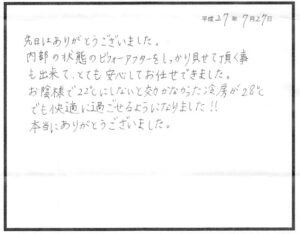 平成27年7月27日
先日はありがとうございました。
内部の状態のビフォーアフターをしっかり見せて頂く事
も出来て、とても安心してお任せできました。
お陰様で22℃にしないと効かなかった冷房が28℃
でも快適に過ごせるようになりました!!
本当にありがとうございました。